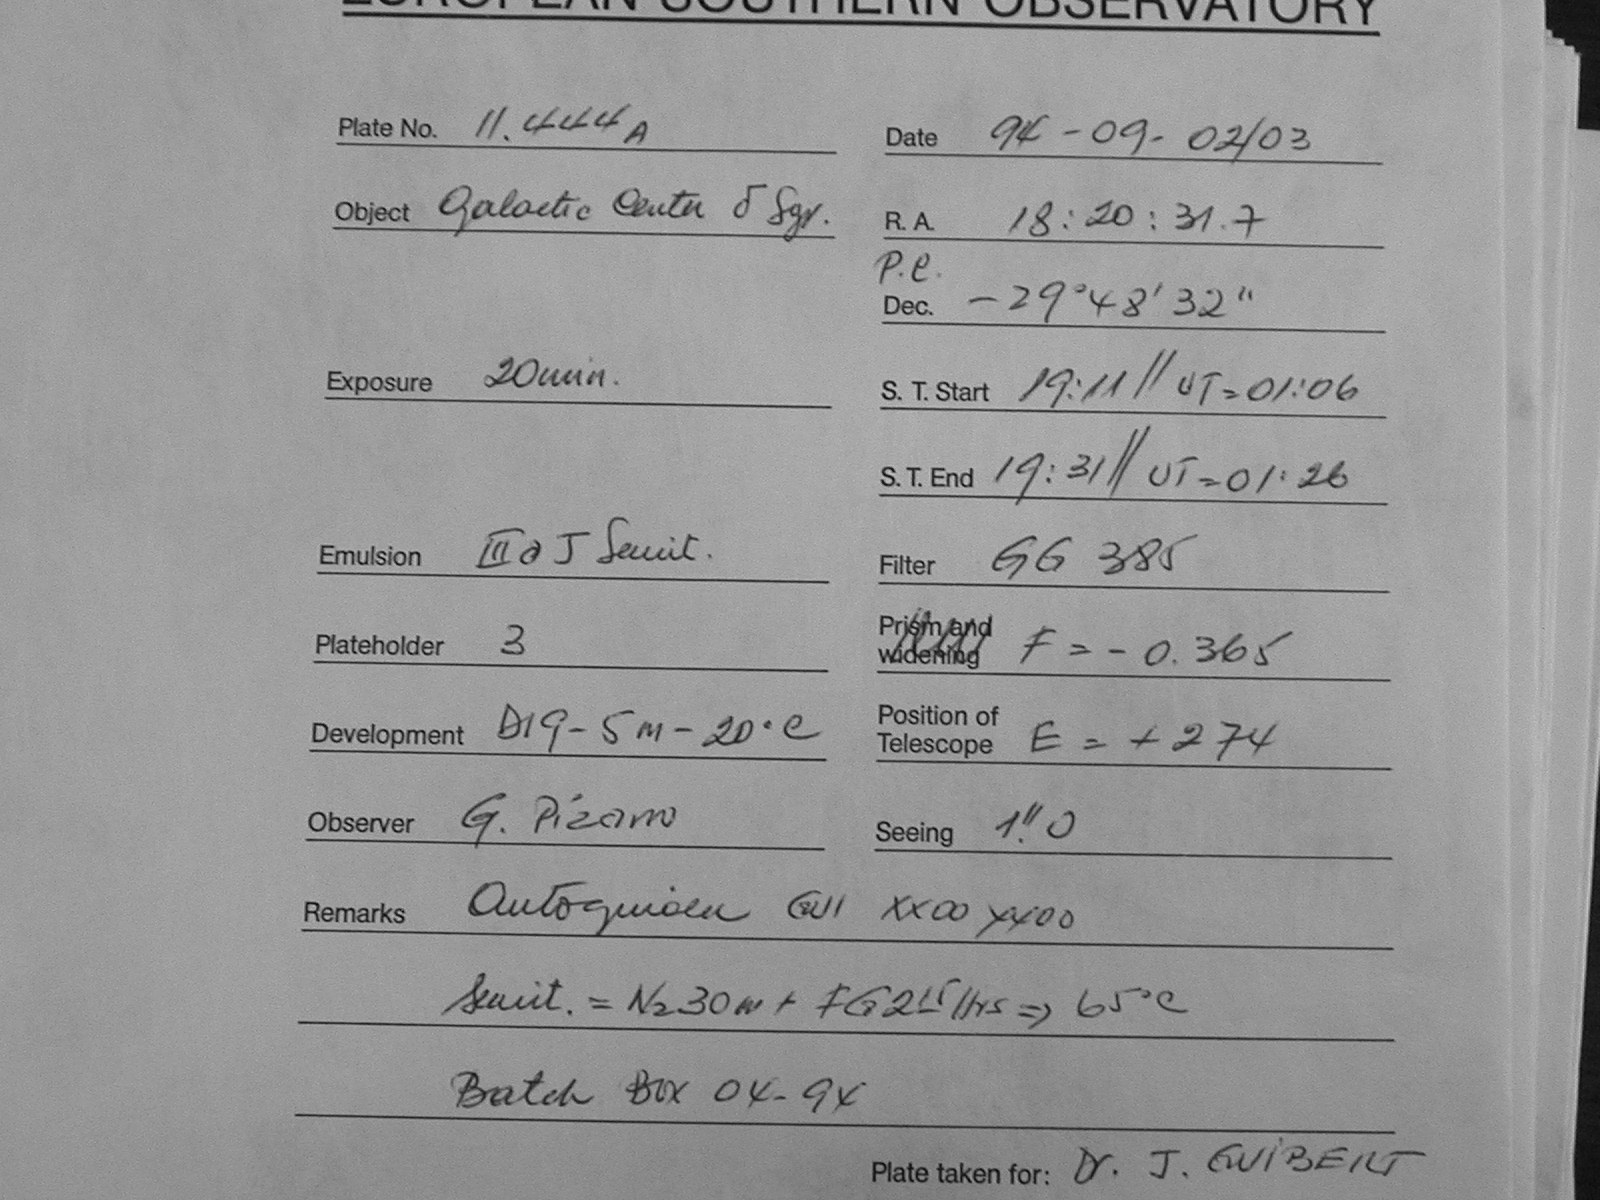 EUROPEAN SOUTHERN OBSERVATORY
Plate No. 11.444A
Date 94-09-02/03
Object Galactic Center δ Sgr.
R. A. 18:20:31.7
P.e.
Dec. -29°48'32"
Exposure 20min.
S. T. Start 19:11 // UT=01:06
S. T. End 19:31 // UT=01:26
Emulsion IIIaJ Sensit.
Filter GG 385
Plateholder 3
Prism and widening F = -0.365
Development D19-5m-20°C
Position of Telescope E = +274
Observer G. Pizarro
Seeing 1"0
Remarks Autoguider XX00 YY00
Sensit. = N2 30m + FG 65°C
Batch Box 04-94
Plate taken for: Dr. J. GUIBERT